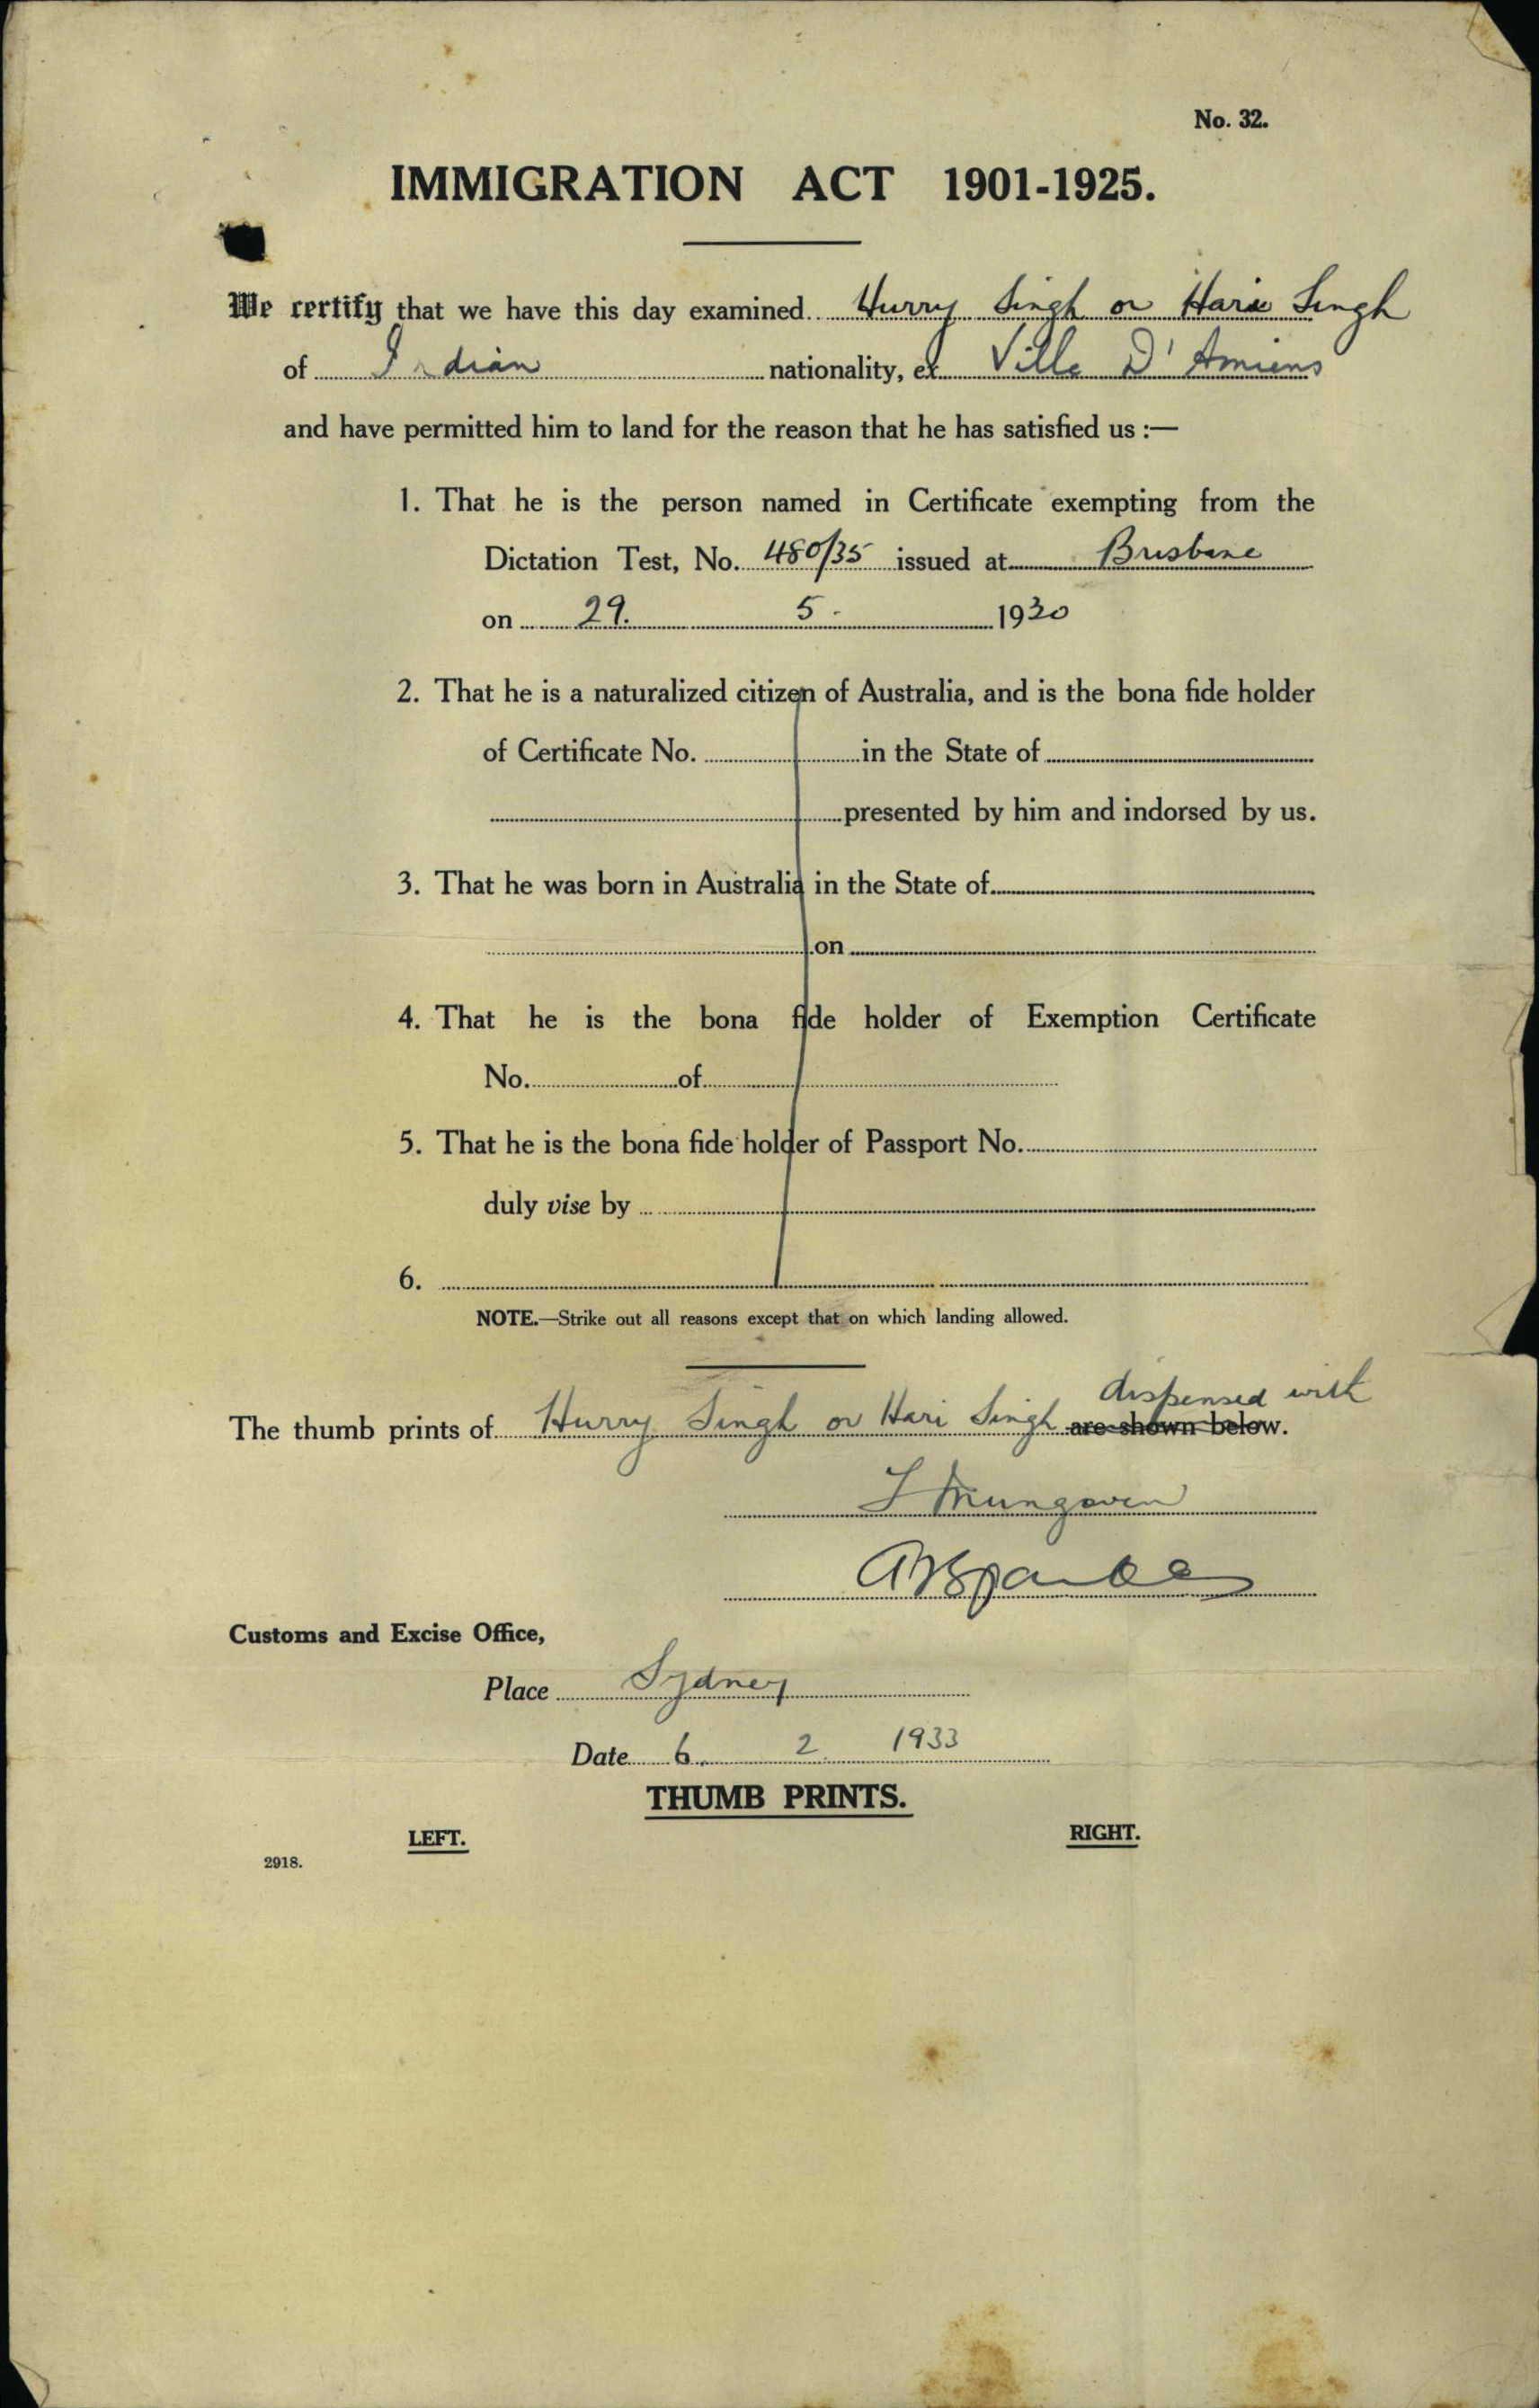 No. 32.
IMMIGRATION ACT 1901-1925.
We certify that we have this day examined Hurry Singh or Hari Singh
of Indian nationality, ex Ville D'Amiens
and have permitted him to land for the reason that he has satisfied us :—
1. That he is the person named in Certificate exempting from the
Dictation Test, No. 480/35 issued at Brisbane
on 29. 5. 1930
2. That he is a naturalized citizen of Australia, and is the bona fide holder
of Certificate No. in the State of
presented by him and indorsed by us.
3. That he was born in Australia in the State of
on
4. That he is the bona fide holder of Exemption Certificate
No. of
5. That he is the bona fide holder of Passport No.
duly vise by
6.
NOTE.—Strike out all reasons except that on which landing allowed.
dispensed with
The thumb prints of Hurry Singh or Hari Singh are shown below.
Customs and Excise Office,
Place Sydney
Date 6 2 1933
THUMB PRINTS.
LEFT. RIGHT.
2918.